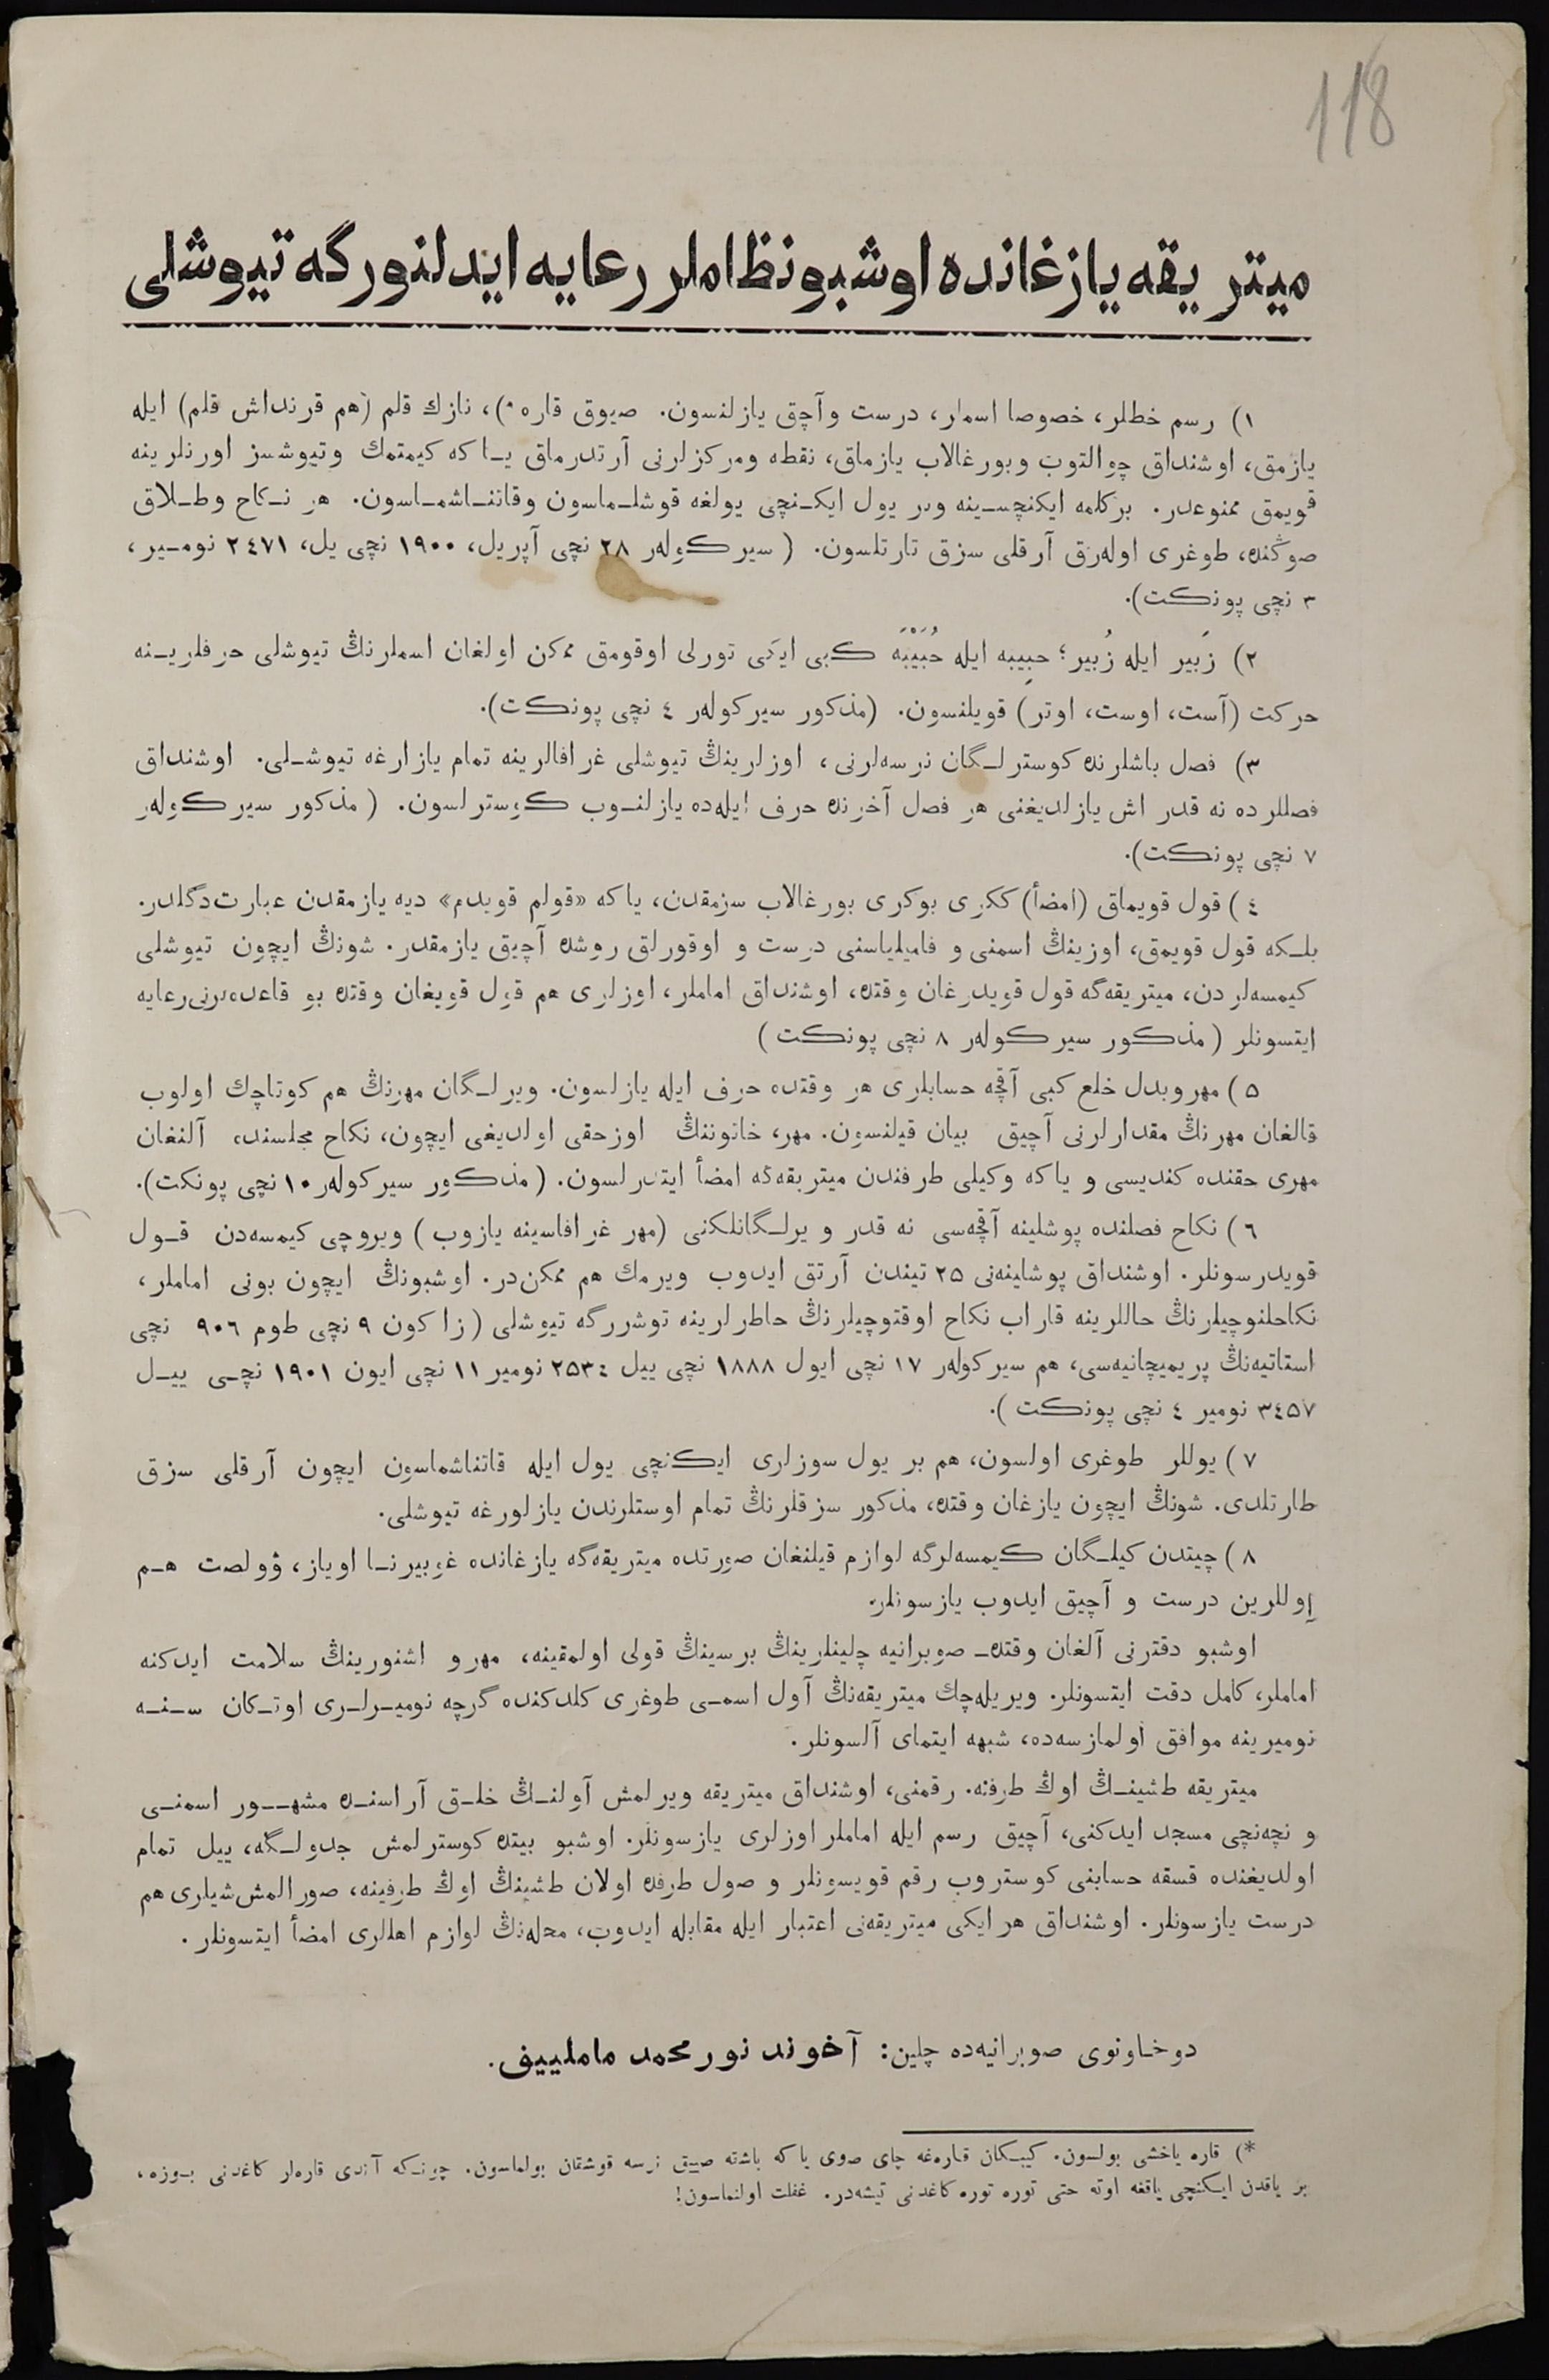 118
میتریقه یازغانده اوشبو نظاملر رعایه ایدلنورگه تیوشلی
١) رسم خطلر، خصوصا اسملر، درست وآچق یازلنسون. صیوق قاره *)، نازك قلم (هم قرنداش قلم) ایله
یازمق، اوشنداق چوالتوب وبورغالاب یازماق، نقطه ومرکزلرنی آرتدرماق یـا که کیمتمك وتیوشسز اورنلرینه
قویمق ممنوعدر. برکلمه ایکنچسـینه وبر یول ایکـنچی یولغه قوشلـماسون وقاتنـاشمـاسون. هر نـکاح وطـلاق
صوڭنده، طوغری اولەرق آرقلی سزق تارتلسون. ( سیرکولەر ٢٨ نچی آپریل، ١٩٠٠ نچی یل، ٢٤٧١ نومـیر،
٣ نچی پونکت).
٢) زَبیر ایله زُبیر؛ حبِیبه ایله حُبَیْبَه کبی ایکی تورلی اوقومق ممکن اولغان اسملرنڭ تیوشلی حرفلریـنه
حرکت (آست، اوست، اوتر) قویلنسون. (مذکور سیرکولەر ٤ نچی پونکت).
٣) فصل باشلرنده کوسترلـگان نرسەلرنی، اوزلرینڭ تیوشلی غرافالرینه تمام یازارغه تیوشـلی. اوشنداق
فصللرده نه قدر اش یازلدیغنی هر فصل آخرنده حرف ایلەده یازلنـوب کوسترلسون. ( مذکور سیرکولەر
٧ نچی پونکت).
٤) قول قویماق (أمضأ) ککری بوکری بورغالاب سزمقدن، یاکه «قولم قویدم» دیه یازمقدن عبارت دگلدر.
بلـکه قول قویمق، اوزینڭ اسمنی و فامیلیاسنی درست و اوقورلق روشده آچیق یازمقدر. شونڭ ایچون تیوشلی
کیمسەلردن، میتریقەگه قول قویدرغان وقتده، اوشنداق اماملر، اوزلری هم قول قویغان وقتده بو قاعدەلرنی رعایه
ایتسونلر ( مذکور سیرکولەر ٨ نچی پونکت )
٥) مهر وبدل خلع کبی آقچه حسابلری هر وقتده حرف ایله یازلسون. ویرلـگان مهرنڭ هم کوتاچك اولوب
قالغان مهرنڭ مقدارلرنی آچیق بیان قیلنسون. مهر، خاتوننڭ اوزحقی اولدیغی ایچون، نکاح مجلسنده آلنغان
مهری حقنده کندیسی و یاکه وکیلی طرفندن میتریقەگه امضأ ایتدرلسون. (مذکور سیرکولەر ١٠ نچی پونکت).
٦) نکاح فصلنده پوشلینه آقچەسی نه قدر ویرلـگانلکنی (مهر غرافاسینه یازوب ) ویروچی کیمسەدن قـول
قویدرسونلر. اوشنداق پوشلینەنی ٢٥ تیندن آرتق ایدوب ویرمك هم ممکن در. اوشبونڭ ایچون بونی اماملر،
نکاحلنوچیلرنڭ حاللرینه قاراب نکاح اوقتوچیلرنڭ خاطرلرینه توشررگه تیوشلی (زاکون ٩ نچی طوم ٩٠٦ نچی
استاتیەنڭ پریمیچانیەسی، هم سیرکولەر ١٧ نچی ایول ١٨٨٨ نچی ییل ٢٥٣٤ نومیر ١١ نچی ایون ١٩٠١ نچـی ییـل
٣٤٥٧ نومیر ٤ نچی پونکت ).
٧) یوللر طوغری اولسون، هم بر یول سوزلری ایکنچی یول ایله قاتناشماسون ایچون آرقلی سزق
طارتلدی. شونڭ ایچون یازغان وقتده، مذکور سزقلرنڭ تمام اوستلرندن یازلورغه تیوشلی.
٨) چیتدن کیلـگان کیمسەلرگه لوازم قیلنغان صورتده میتریقەگه یازغانده غوبیرنـا اویاز، ۋولصت هـم
آوللرین درست و آچیق ایدوب یازسونلر.
اوشبو دفترنی آلغان وقتده صوبرانیه چلینلرینڭ برسینڭ قولی اولمقینه، مهر و اشنورینڭ سلامت ایدکنه
اماملر، کامل دقت ایتسونلر. ویریلەچك میتریقەنڭ آول اسمـی طوغری کلدکنده گرچه نومیـرلـری اوتـکان سـنـه
نومیرینه موافق اولمازسەده، شبهه ایتمای آلسونلر.
میتریقه طشینـڭ اوڭ طرفنه رقمنی، اوشنداق میتریقه ویرلمش آولنـڭ خلـق آراسنـده مشهـور اسمنـی
و نچەنچی مسجد ایدکنی، آچیق رسم ایله اماملر اوزلری یازسونلر. اوشبو بیتده کوسترلمش جدولـگه، ییل تمام
اولدیغنده قسقه حسابنی کوستروب رقم قویسونلر و صول طرفده اولان طشینڭ اوڭ طرفینه، صورالمش شیلری هم
درست یازسونلر. اوشنداق هر ایکی میتریقەنی اعتبار ایله مقابله ایدوب، محلەنڭ لوازم اهللری امضأ ایتسونلر.
دوخاونوی صوبرانیەده چلین: آخوند نورمحمد ماملییف.
*) قاره یاخشی بولسون. کیبـکان قارەغه چای صوی یاکه باشقه صیق نرسه قوشقان بولماسون. چونـکه آندی قارەلر کاغدنی بـوزه،
بر یاقدن ایـکنچی یاققه اوته حتی توره توره کاغدنی تیشەدر. غفلت اولنماسون!